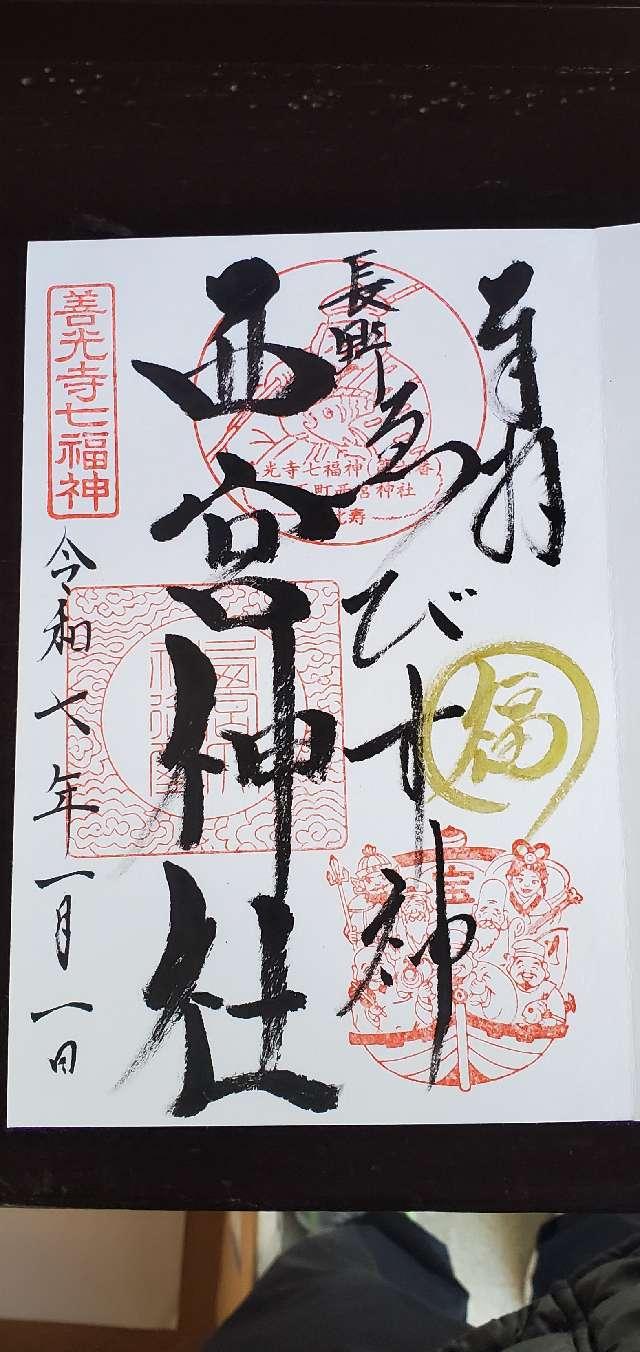 奉拝
長野ゑびす神
西宮神社
善光寺七福神
令和七年一月一日
光寺七福神
町西宮神社
寿
福
宝